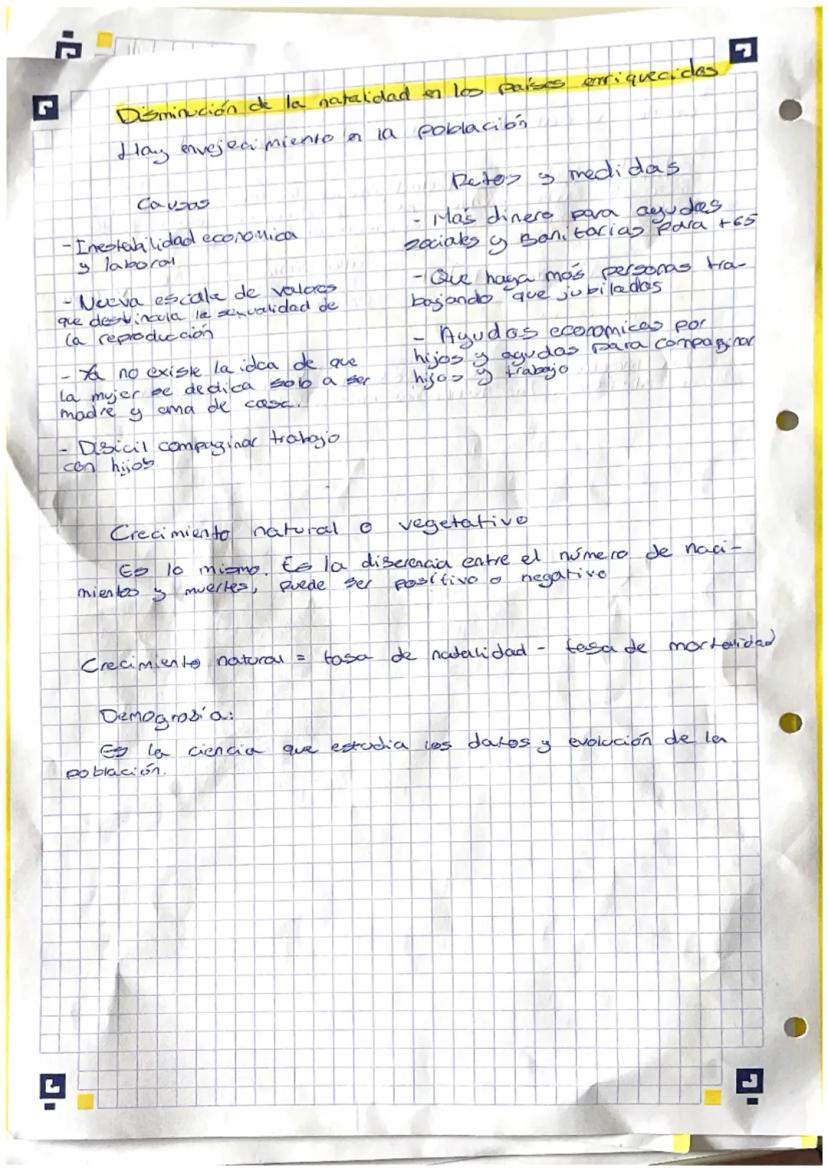 Disminución de la natalidad en los países enriquecidos
Hay envejecimiento en la población
Causas
- Inestabilidad económica
y laboral
- Nueva escala de valores
que desvincula la sexualidad de
la reproducción
- Ya no existe la idea de que
la mujer se dedica solo a ser
madre y ama de casa.
- Dificil compaginar trabajo
con hijos
Retos y medidas
- Más dinero para ayudas
sociales y sanitarias para +65
- Que haya más personas tra-
bajando que jubilados
- Ayudas economicas por
hijos y ayudas para compaginar
hijos y trabajo
Crecimiento natural o vegetativo
Es lo mismo. Es la diferencia entre el número de naci-
mientos y muertes, puede ser positivo o negativo
Crecimiento natural = tasa de natalidad - tasa de mortalidad
Demografía:
Es la ciencia que estudia los datos y evolución de la
población.